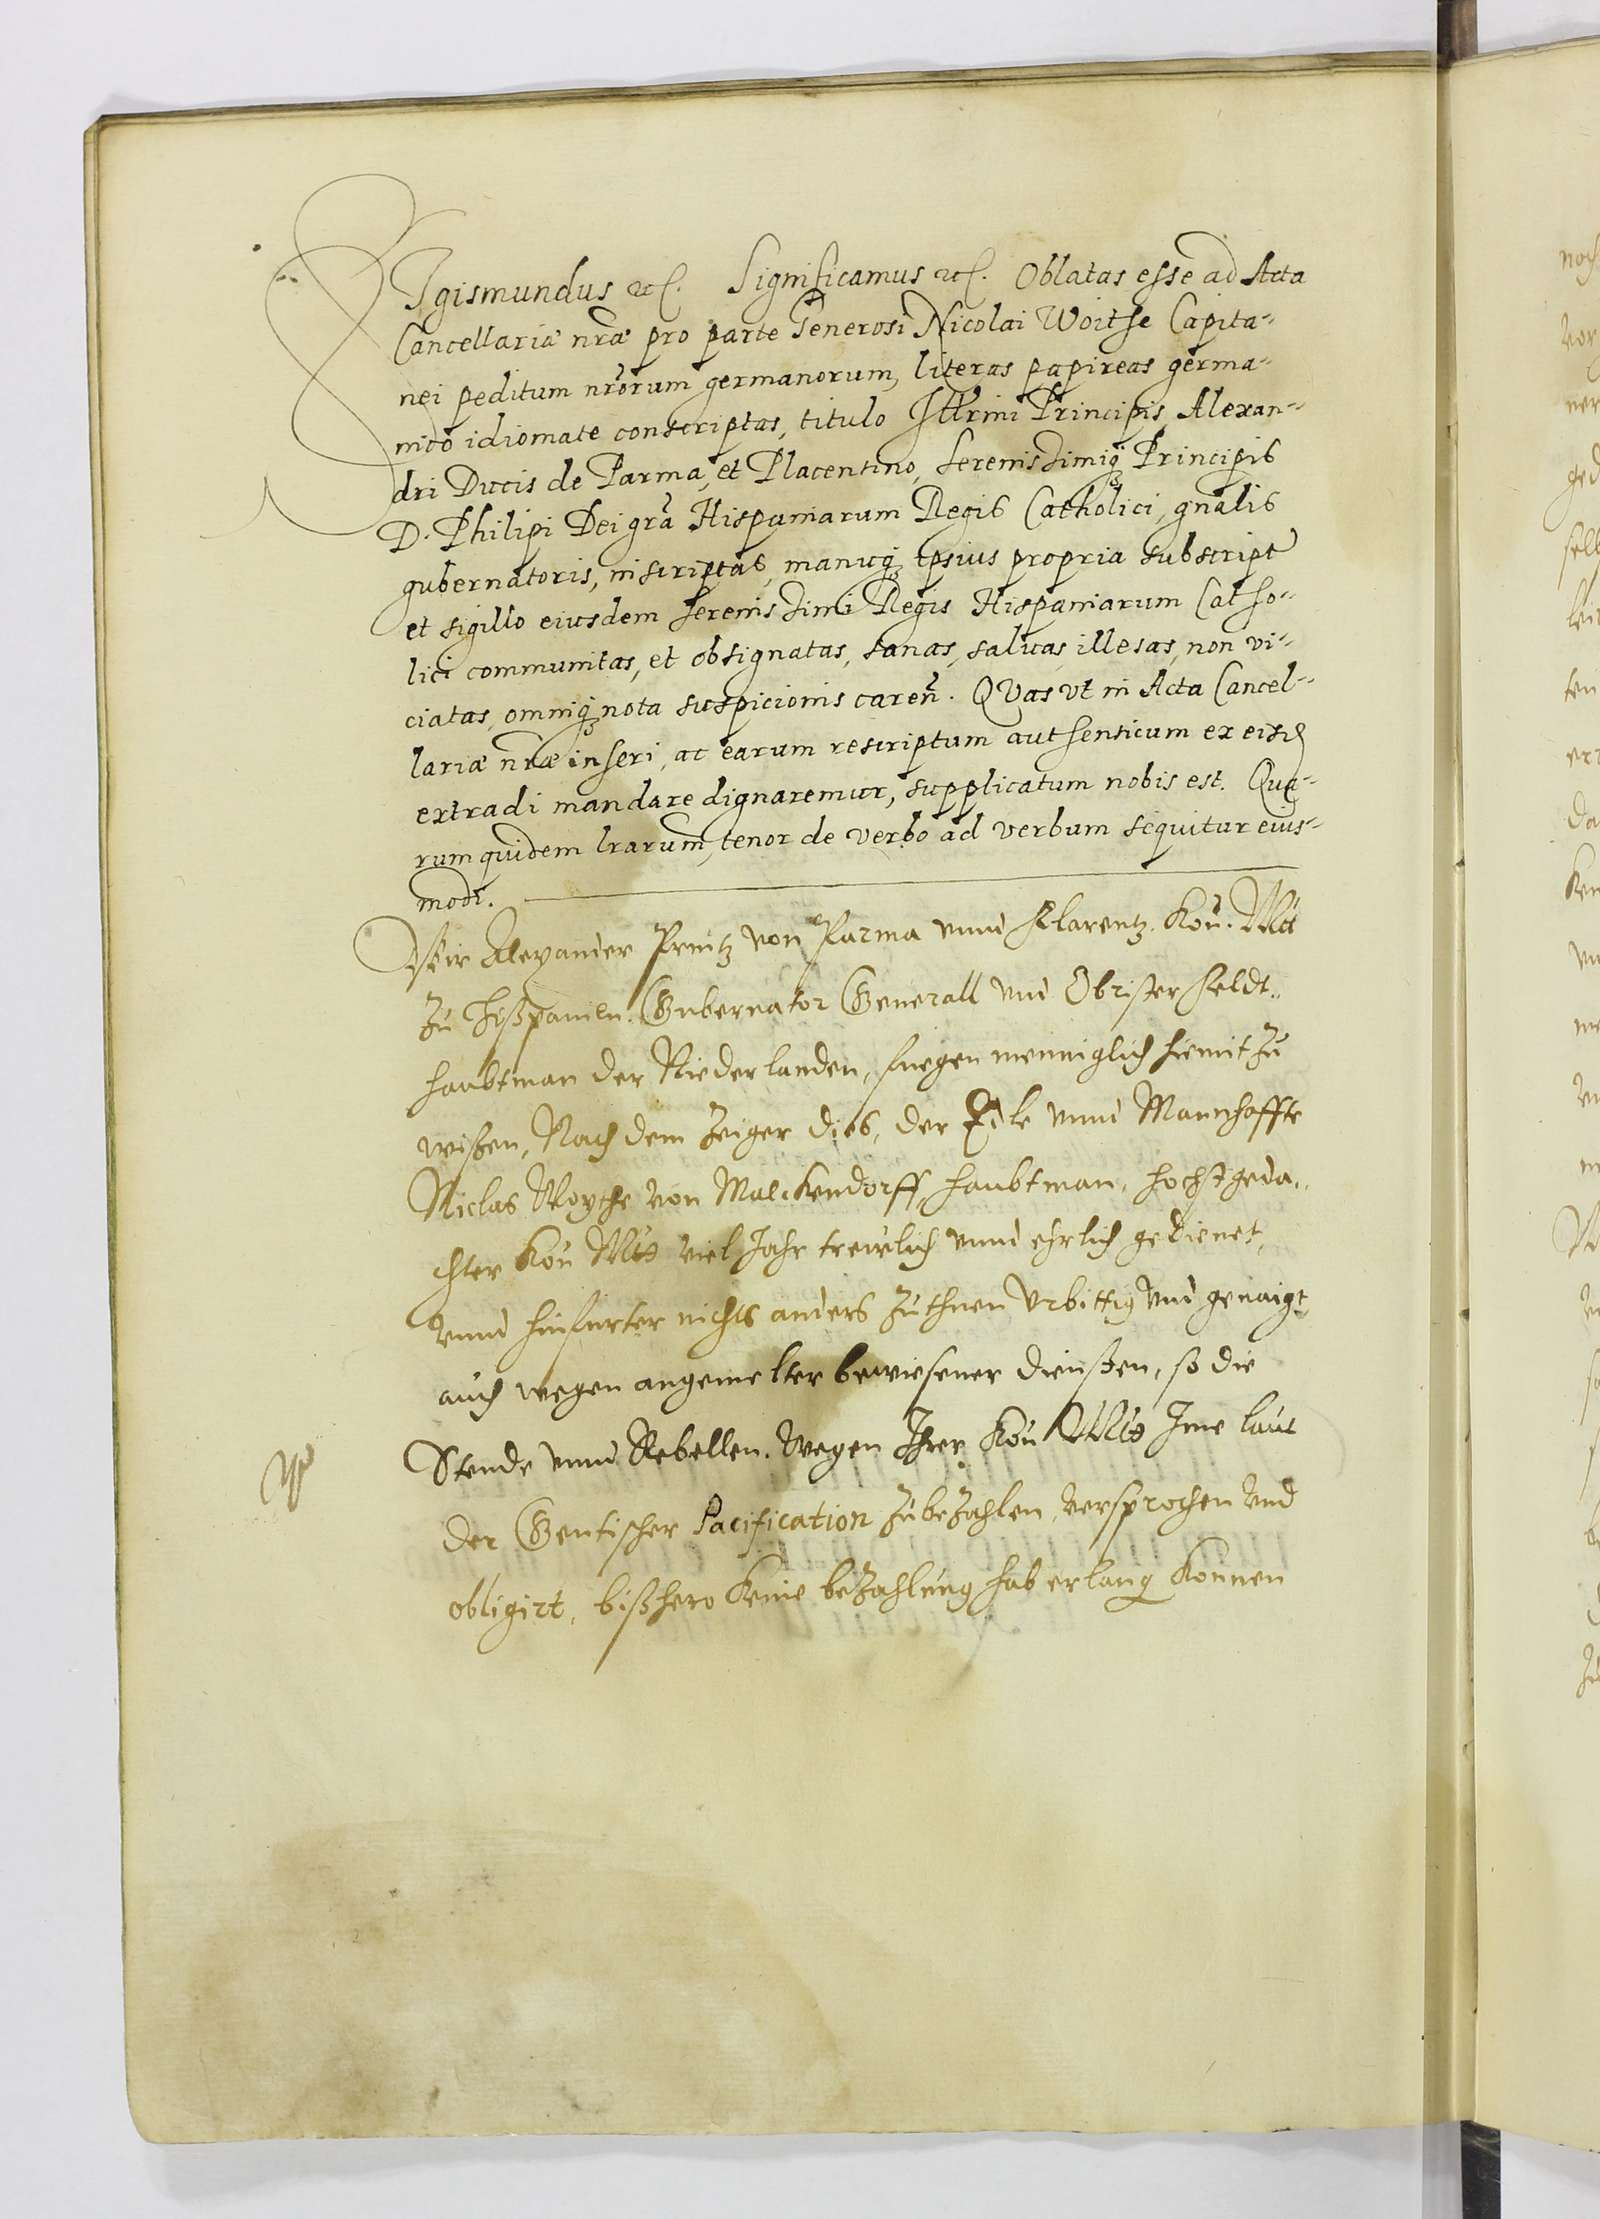 SIgismundus etc. Significamus etc. Oblatas esse ad Acta
Cancellariæ nræ pro parte Generosi Nicolai Woitse Capita-
nei peditum nrorum germanorum, literas papireas germa-
nico idiomate conscriptas, titulo Illrmi Principis Alexan-
dri Ducis de Parma, et Placentino, serenissimiq Principis
D. Philipi Dei gra Hispaniarum Regis Catholici, gnalis
gubernatoris, inscriptas, manuq ipsius propria subscript
et sigillo eiusdem serenissimi Regis Hispaniarum Catho-
lici communitas, et obsignatas, sanas, saluas, illesas, non vi-
ciatas, omniq nota suspicionis caren. Quas vt in Acta Cancel-
lariæ nræ inseri, ac earum rescriptum authenticum ex eisd
extradi mandare dignaremur, supplicatum nobis est. Qua-
rum quidem lrarum, tenor de verbo ad verbum sequitur eius-
modi.
Wir Alexander Printz von Parma vnnd Plarentz. Kön. Mtt
zu Hißpanien. Gubernator Generall vnd Obrister Feldt-
haubtman der Niederlanden, fuegen menniglich hiemit zu
wißen, Nach dem Zeiger dies, der Edle vnnd Mannhaffte
Niclas Woytße von Malckendorff, Haubtman, hochstgeda-
chter Kön Mtt viel Jahr trewlich vnnd ehrlich gedienet,
vnnd hinfurter nichts anders zuthuen Urbittig vnd genaigt,
auch wegen angemelter bewiesener diensten, so die
Stende vnnd Rebellen. wegen Ihrer Kön Mtt Ime laut
der Gentischer Pacification zubezahlen, versprochen vnd
obligirt, bißhero keine bezahlung hab erlang können